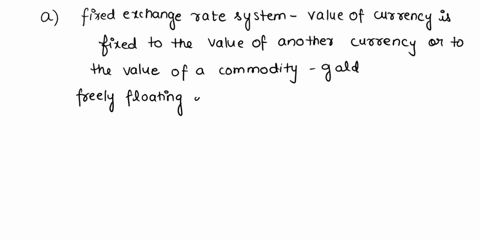 a) fixed exchange rate system - value of currency is
fixed to the value of another currency or to
the value of a commodity - gold
freely floating